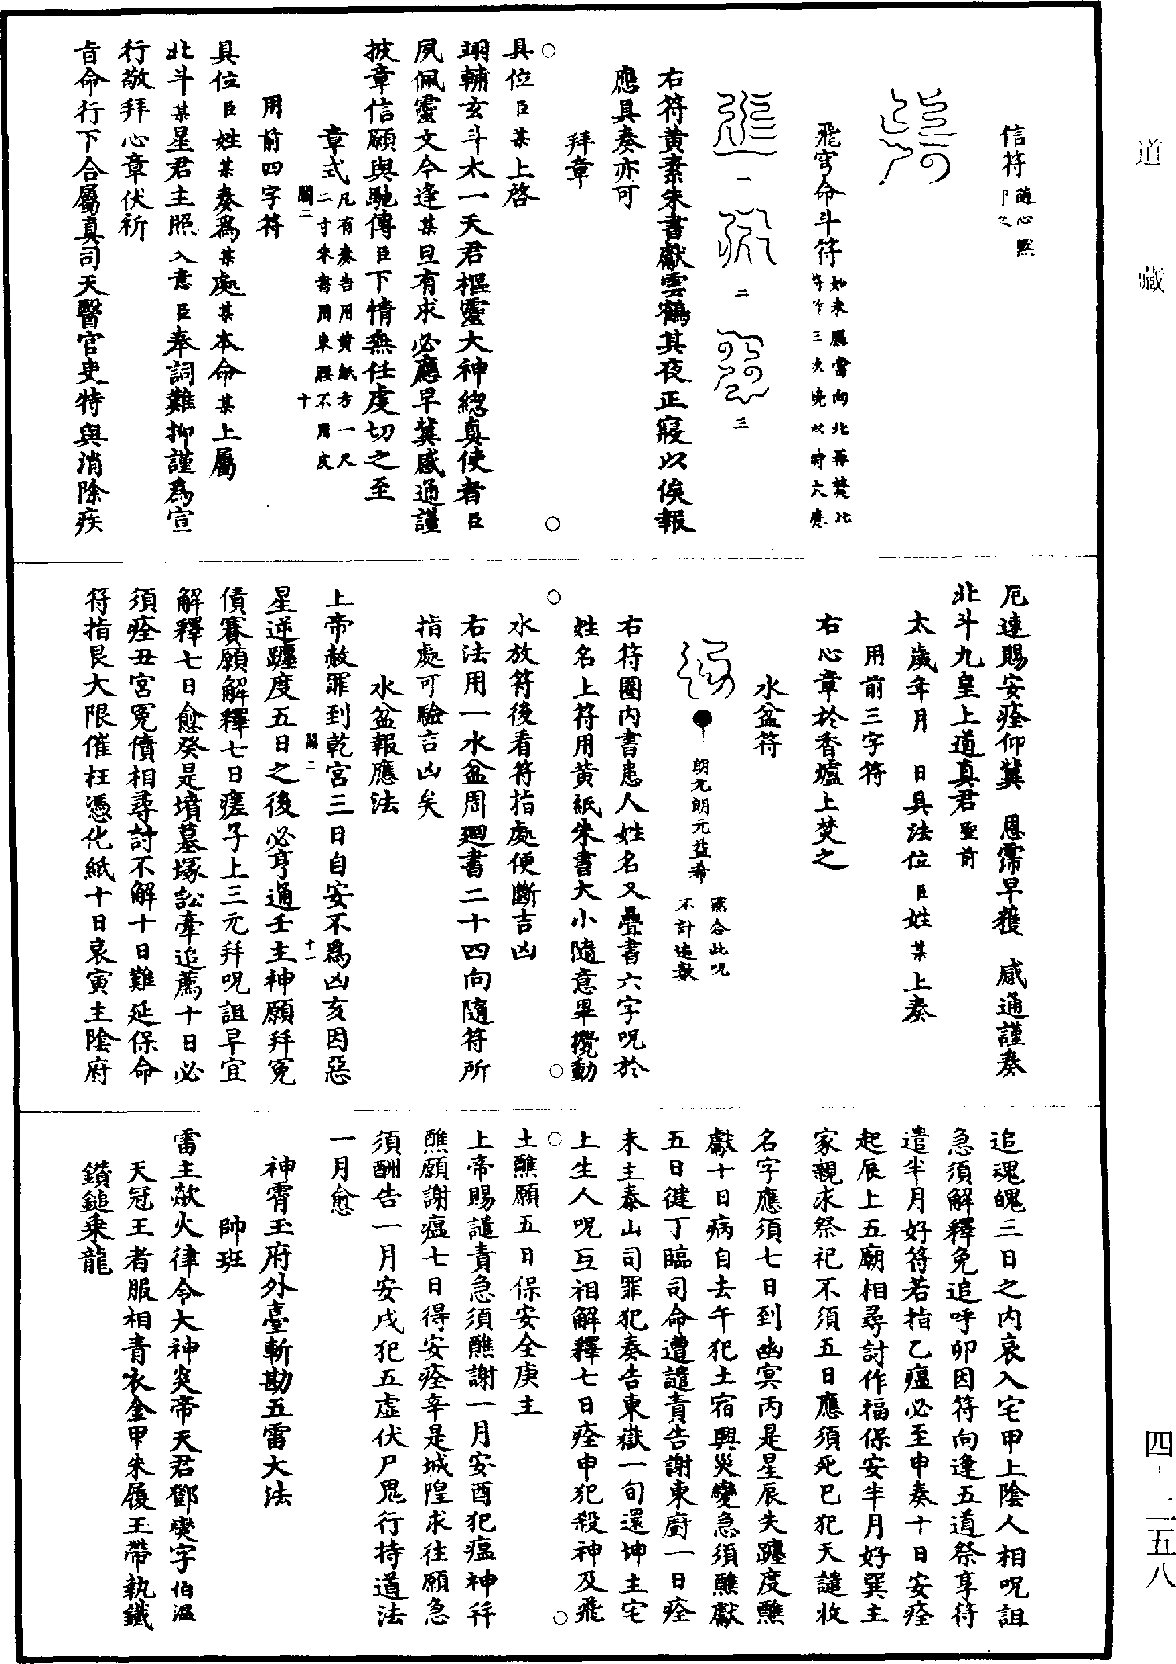 道藏
信符
飛穹命斗符
一
二
三
右符黃素朱書獻雲鶴其夜正寢以俟報
應具奏亦可
拜章
具位臣某上啓
翊輔玄斗太一天君樞靈大神緫眞使者臣
夙佩靈文今逢某旦有求必應早冀感通謹
披章信願與馳傳臣下情無任虔切之至
章式凡有奏告用黃紙方一尺
二寸朱書用束腰不用皮
闕二 十
用前四字符
具位臣姓某奏爲某處某本命某上屬
北斗某星君主照入意臣奉詞難抑謹爲宣
行敬拜心章伏祈
旨命行下合屬眞司天醫官吏特與消除疾
厄速賜安痊仰冀 恩霈早獲 感通謹奏
北斗九皇上道眞君聖前
太歲年月 日具法位臣姓某上奏
用前三字符
右心章於香爐上焚之
水盆符
右符圈內書患人姓名又疊書六字呪於
姓名上符用黃紙朱書大小隨意畢攪動
水放符後看符指處便斷吉凶
右法用一水盆周廻書二十四向隨符所
指處可驗吉凶矣
水盆報應法
上帝赦罪到乾宮三日自安不爲凶亥因惡
闕二 十一
星逆躔度五日之後必亨通壬主神願拜寃
債賽願解釋七日瘥子上三元拜呪詛早宜
解釋七日愈癸是墳墓塚訟牽追薦十日必
須痊丑宮冤債相尋討不解十日難延保命
符指艮大限催枉憑化紙十日哀寅主陰府
追魂魄三日之內哀入宅甲上陰人相呪詛
急須解釋免追呼卯因符向逢五道祭享符
遣半月好符若指乙瘟必至申奏十日安痊
起辰上五廟相尋討作福保安半月好巽主
家親求祭祀不須五日應須死巳犯天譴收
名字應須七日到幽冥丙是星辰失躔度醮
獻十日病自去午犯土宿興災變急須醮獻
五日徤丁臨司命遭譴責告謝東廚一日痊
未主泰山司罪犯奏告東嶽一旬還坤主宅
上生人呪互相解釋七日痊申犯殺神及飛
土醮願五日保安全庚主
上帝賜譴責急須醮謝一月安酉犯瘟神幷
醮願謝瘟七日得安痊辛是城隍求往願急
須酬告一月安戌犯五虛伏尸鬼行持道法
一月愈
神霄玉府外臺斬勘五雷大法
帥班
雷主歘火律令大神炎帝天君鄧燮字伯溫
天冠王者服相青衣金甲朱履王帶執鐵
鑽鎚乘龍
四·二五八